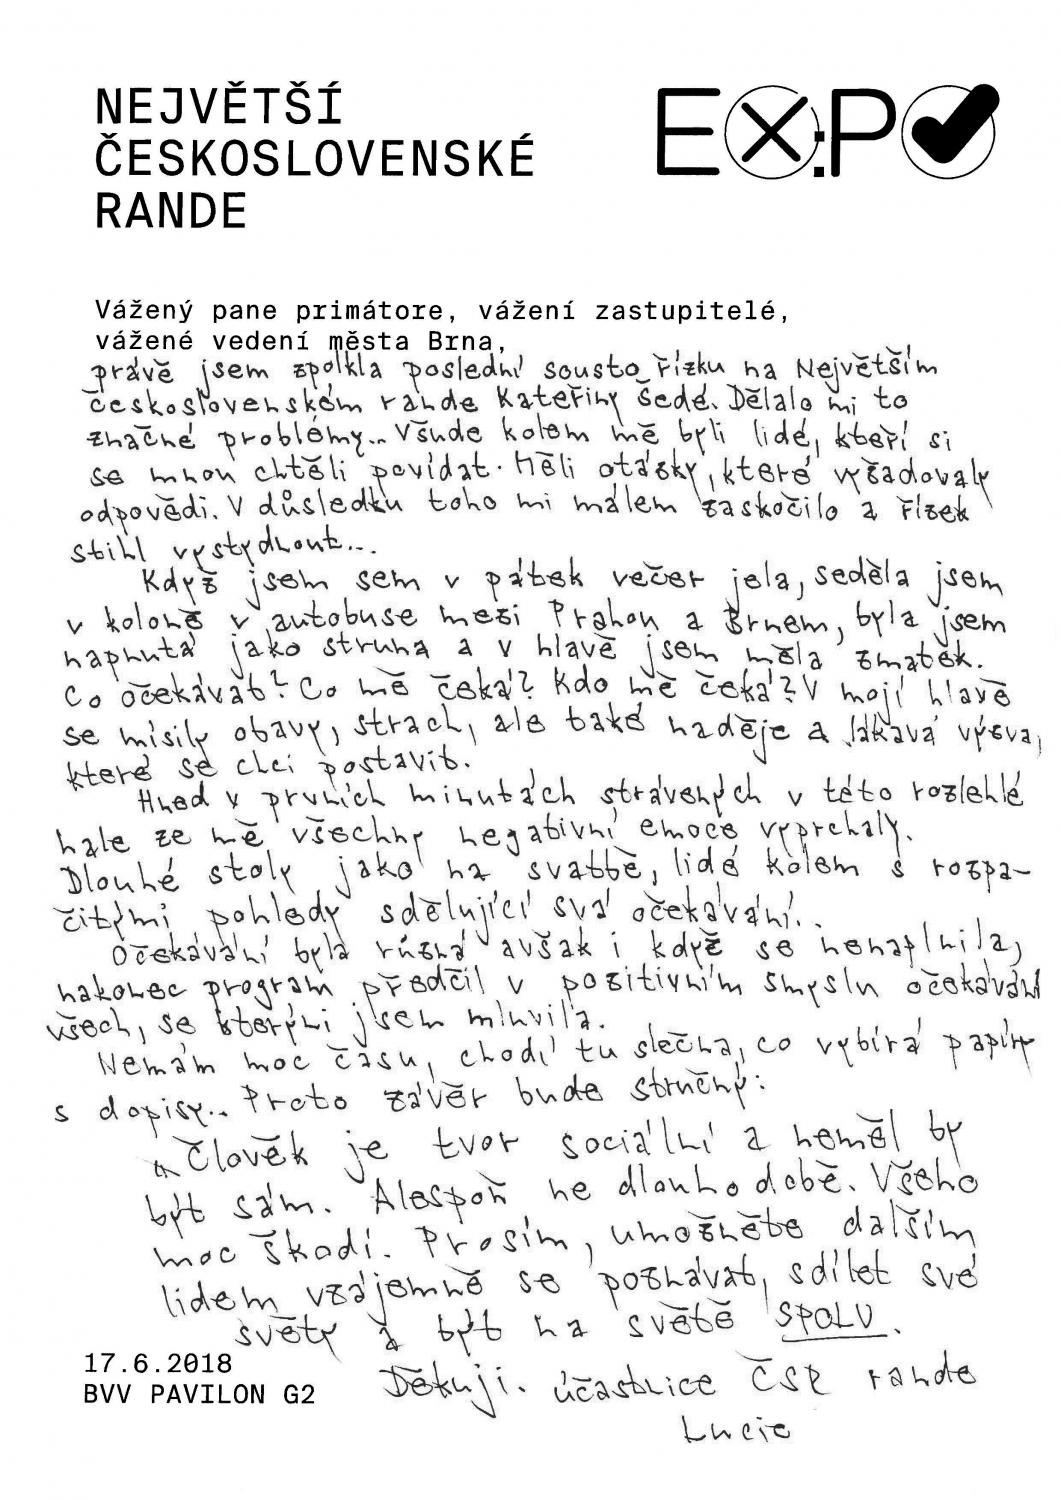 NEJVĚTŠÍ
ČESKOSLOVENSKÉ
RANDE
EX:PO
Vážený pane primátore, vážení zastupitelé,
vážené vedení města Brna,
právě jsem zpolkla poslední sousto řízku na Největším
československém rande Kateřiny Šedé. Dělalo mi to
značné problémy.. Všude kolem mě byli lidé, kteří si
se mnou chtěli povídat. Měli otázky, které vyžadovaly
odpovědi. V důsledku toho mi málem zaskočilo a řízek
stihl vystydnout...
Když jsem sem v pátek večer jela, seděla jsem
v koloně v autobuse mezi Prahou a Brnem, byla jsem
napnutá jako struna a v hlavě jsem měla zmatek.
Co očekávat? Co mě čeká? Kdo mě čeká? V mojí hlavě
se mísily obavy, strach, ale také naděje a lákavá výzva,
které se chci postavit.
Hned v prvních minutách strávených v této rozlehlé
hale ze mě všechny negativní emoce vyprchaly.
Dlouhé stoly jako na svatbě, lidé kolem s rozpa-
čitými pohledy sdělující svá očekávání..
Očekávání byla různá avšak i když se nenaplnila,
nakonec program předčil v pozitivním smyslu očekávání
všech, se kterými jsem mluvila.
Nemám moc času, chodí tu slečna, co vybírá papíry
s dopisy.. Proto závěr bude stručný:
„Člověk je tvor sociální a neměl by
být sám. Alespoň ne dlouhodobě. Všeho
moc škodí. Prosím, umožněte dalším
lidem vzájemně se poznávat, sdílet své
světy a být na světě SPOLU.
17.6.2018
BVV PAVILON G2
Děkuji. účastnice ČSR rande
Lucie